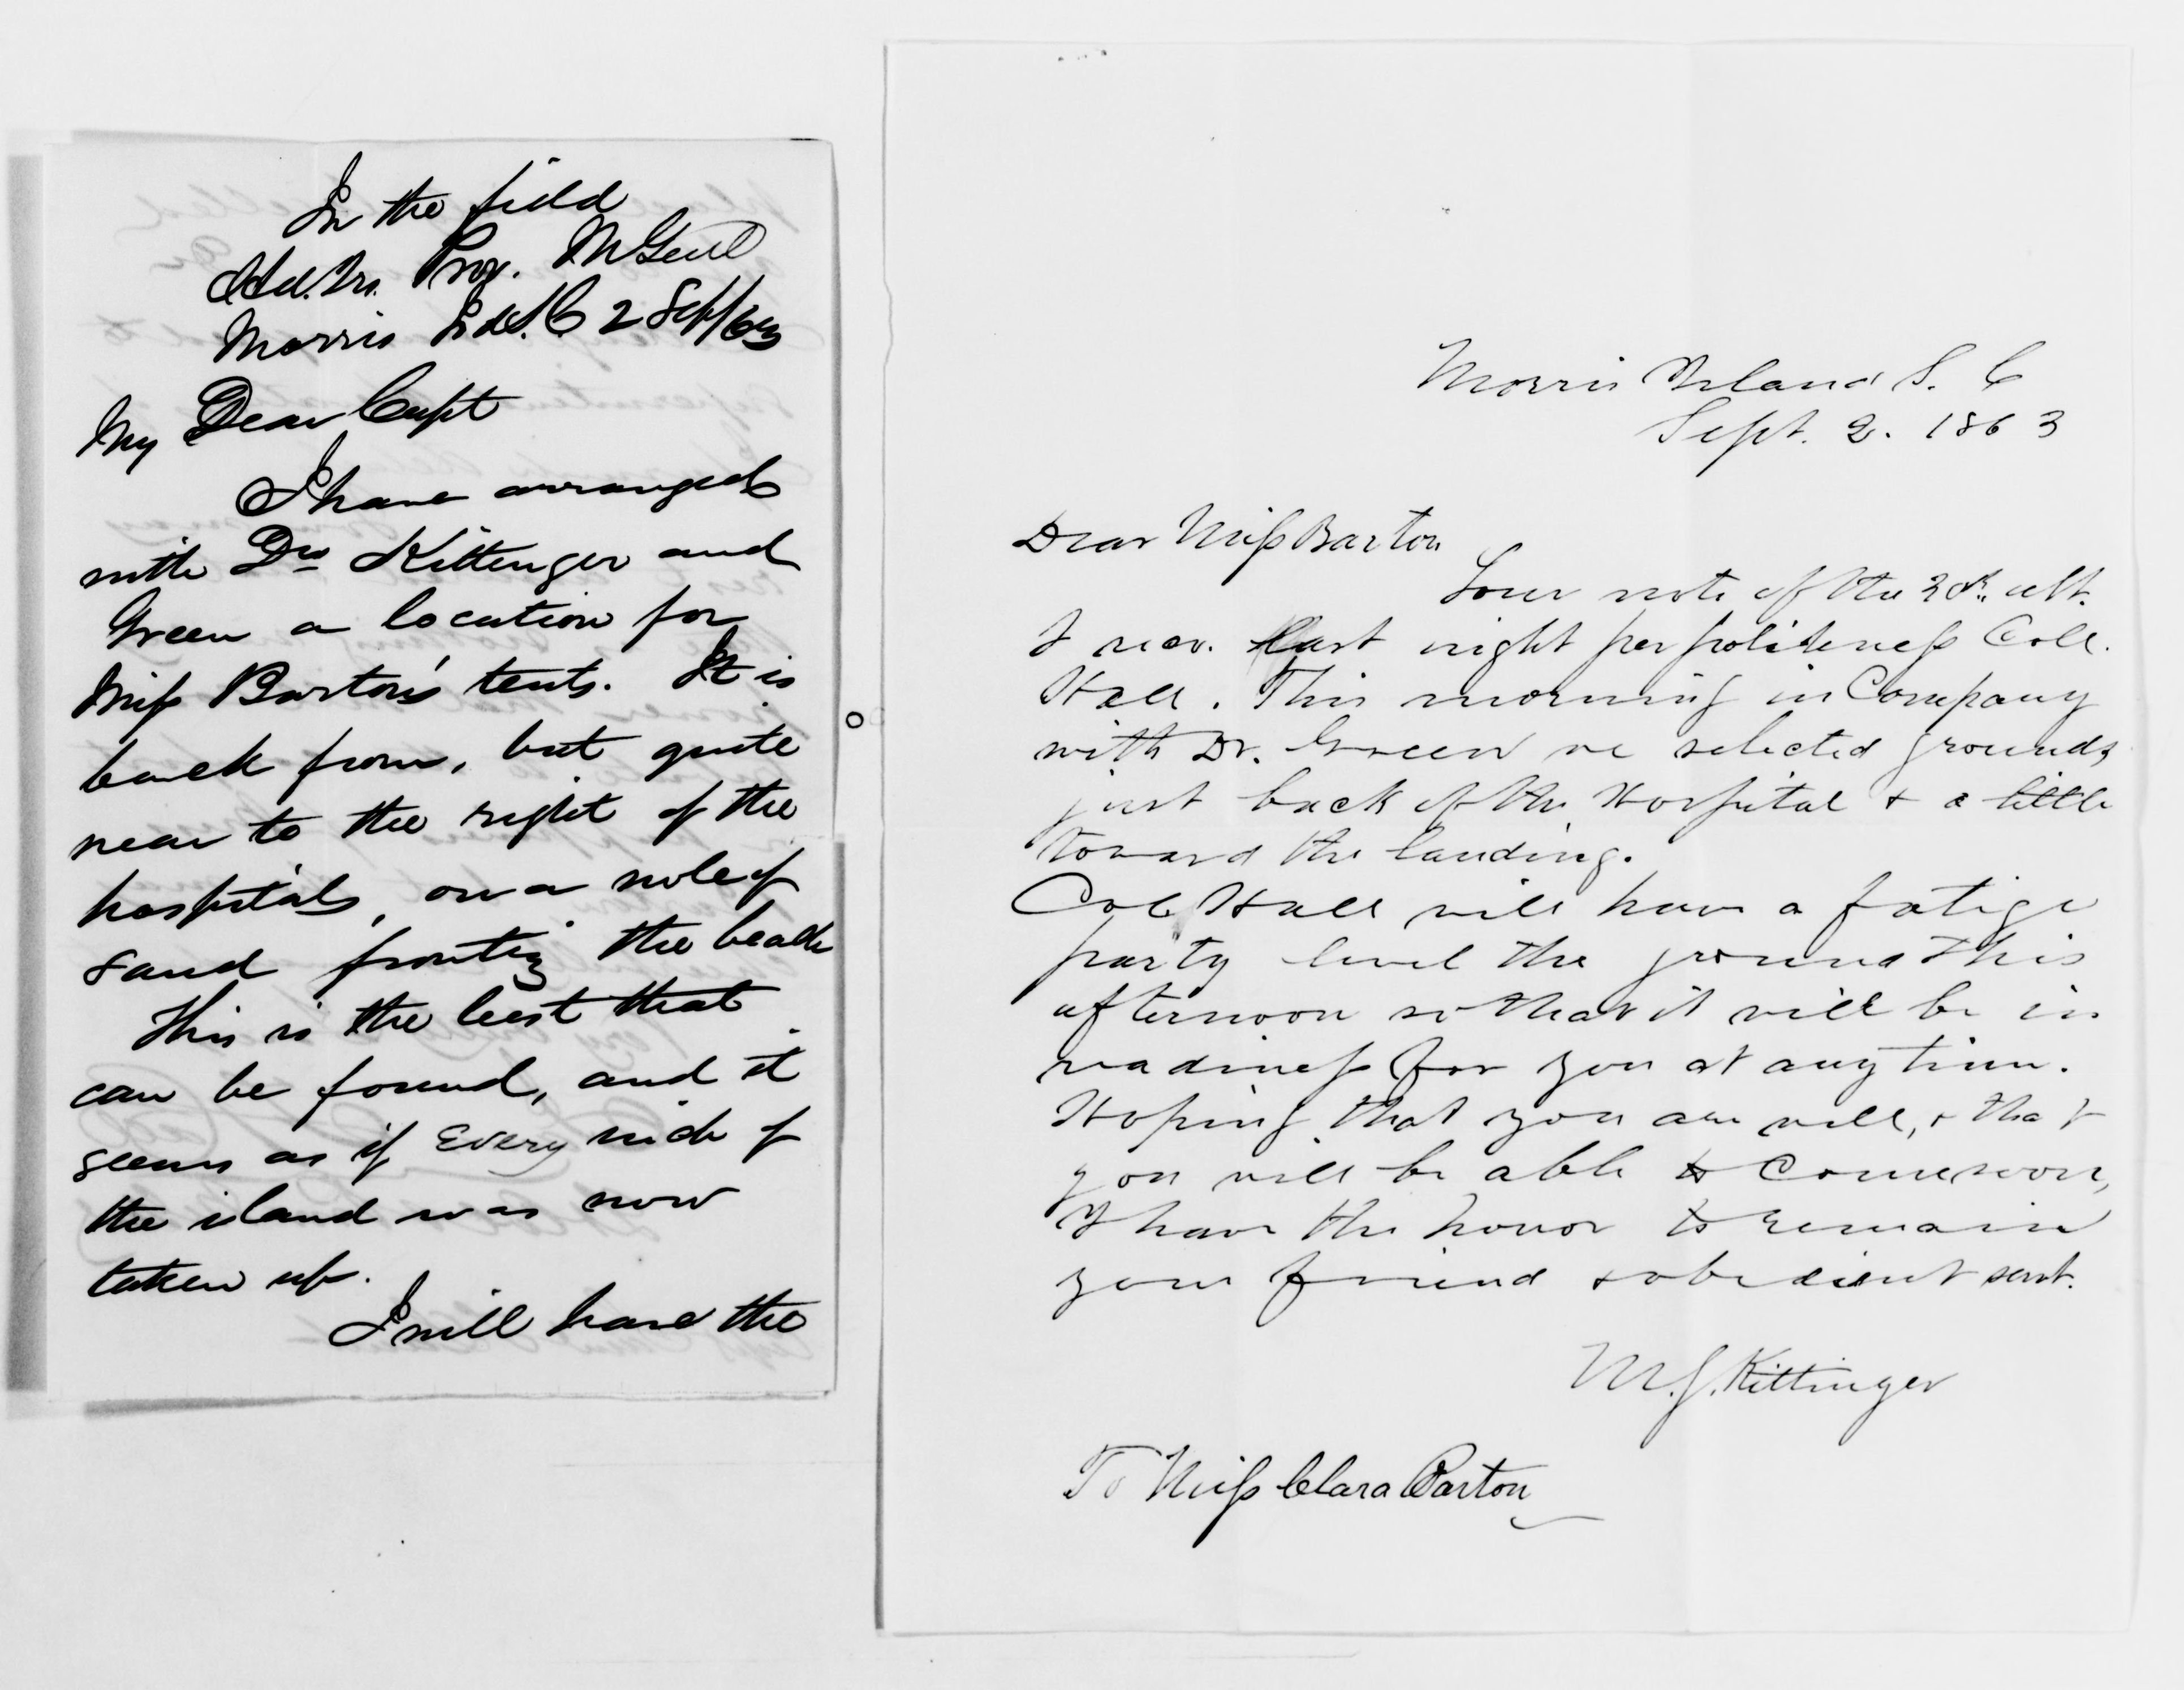 In the field
Hd. Qrs. Prov. M Genl
Morris Isd S. C 2 Sept/63
My Dear Capt
I have arranged
with Drs Kittenger and
Green a location for
Miss Barton's tents. It is
back from, but quite
near to the right of the
hospitals, on a nole of
sand fronting the beach
This is the best that
can be found, and it
seems as if every inch of
the island was now
taken up.
I will have the
Morris Island S. C
Sept. 2. 1863
Dear Miss Barton
Your note of the ult.
I recv. last night per politeness Coll.
Hall. This morning in Company
with Dr. Green we selected grounds
just back of the Hospital & a little
toward the landing.
Col Hall will have a fatige
party level the ground this
afternoon so that it will be in
readiness for you at any time.
Hoping that you are well, & that
you will be able to come soon,
I have the honor to remain
your friend & obedient servt.
M. S. Kittinger
To Miss Clara Barton